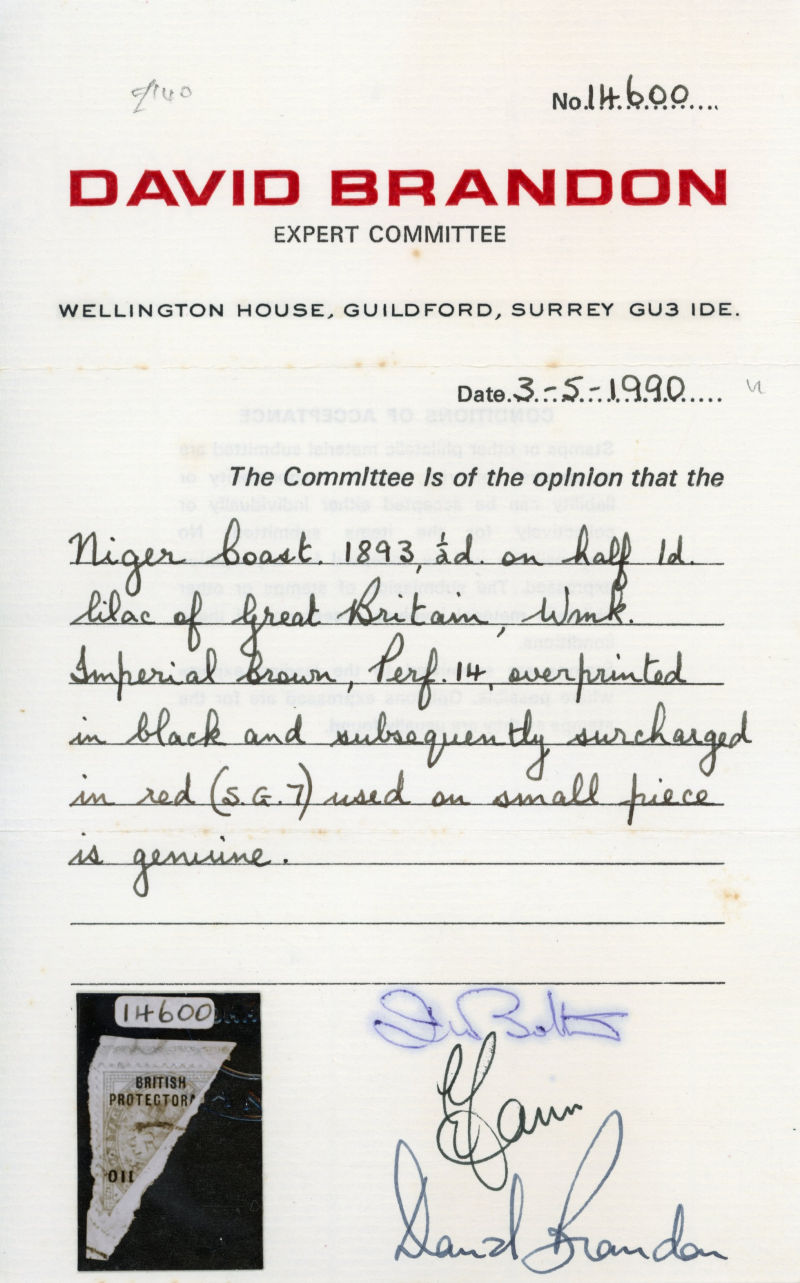 No. 14600
DAVID BRANDON
EXPERT COMMITTEE
WELLINGTON HOUSE, GUILDFORD, SURREY GU3 IDE.
Date. 3-5-1990
The Committee is of the opinion that the
Niger Coast. 1893, ½d. on half 1d.
lilac of Great Britain, Wmk.
Imperial Crown, Perf. 14, overprinted
in black and subsequently surcharged
in red (S.G.7) used on small piece
is genuine.
14600
BRITISH
PROTECTORA
OIL
David Brandon